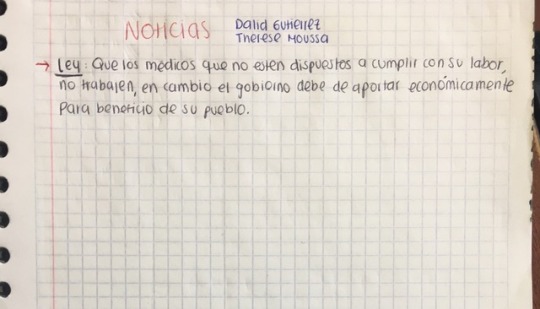 Noticias
Dalid Gutierrez
Therese Moussa
→ Ley: Que los médicos que no esten dispuestos a cumplir con su labor,
no trabajen, en cambio el gobiorno debe de aportar económicamente
para beneficio de su pueblo.